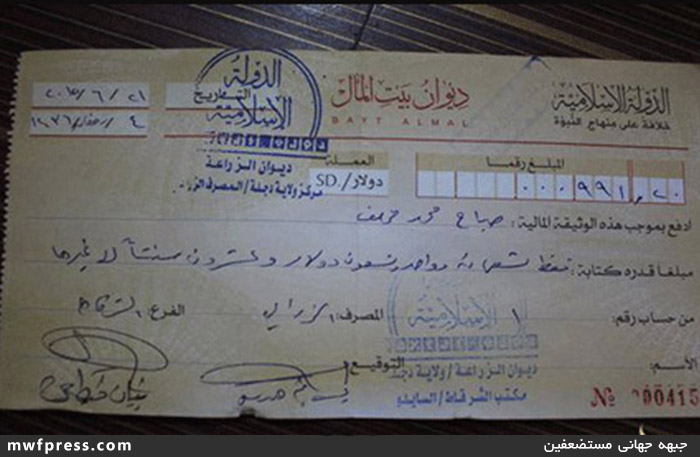 الدولة الإسلامية
خلافة على منهاج النبوة
ديوان بيت المال
BAYT ALMAL
الدولة
الإسلامية
ديوان الزراعة
مركز ولاية دجلة / المصرف
التاريخ
٢٠١٥/٦/٢١
٤ / رمضان / ١٤٣٦
المبلغ رقما
٠٠٠٩٩١,٢٠
العملة
دولار/SD.
ادفع بموجب هذه الوثيقة المالية : صباح محمد خلف
مبلغا قدره كتابة : فقط تسعمائة وواحد وتسعون دولار وعشرون سنتاً لا غيرها
من حساب رقم : ١
المصرف : الزراعي
الفرع : الشرقاط
الإسلامية
ديوان الزراعة / ولاية دجلة
مكتب الشرقاط / السايلو
الأسم :
التوقيع
№ 000415
mwfpress.com
جبهه جهانی مستضعفین